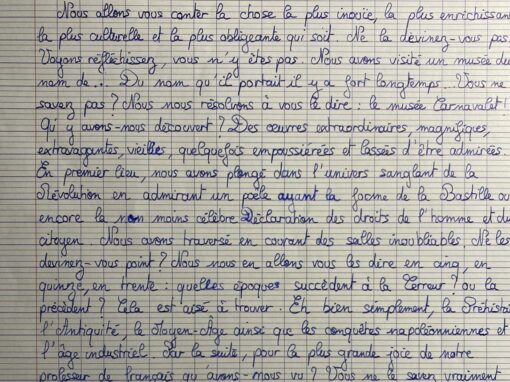 Nous allons vous conter la chose la plus inouïe, la plus enrichissan
la plus culturelle et la plus obligeante qui soit. Ne la devinez-vous pas
Voyons réfléchissez, vous n'y êtes pas. Nous avons visité un musée du
nom de... Du nom qu'il portait il y a fort longtemps... Vous ne
savez pas ? Nous nous résolvons à vous le dire : le musée Carnavalet !
Qu'y avons-nous découvert ? Des œuvres extraordinaires, magnifiques,
extravagantes, vieilles, quelquefois empoussiérées et lassées d'être admirées.
En premier lieu, nous avons plongé dans l'univers sanglant de la
Révolution en admirant un poêle ayant la forme de la Bastille ou
encore la non moins célèbre Déclaration des droits de l'homme et du
citoyen. Nous avons traversé en courant des salles inoubliables. Ne les
devinez-vous point ? Nous nous en allons vous les dire en cinq, en
quinze, en trente : quelles époques succèdent à la Terreur ? ou la
précèdent ? Cela est aisé à trouver. Eh bien simplement, la Préhistoi
l'Antiquité, le Moyen-Âge ainsi que les conquêtes napoléonniennes et
l'âge industriel. Par la suite, pour la plus grande joie de notre
professeur de français qu'avons-nous vu ? Vous ne le savez vraiment